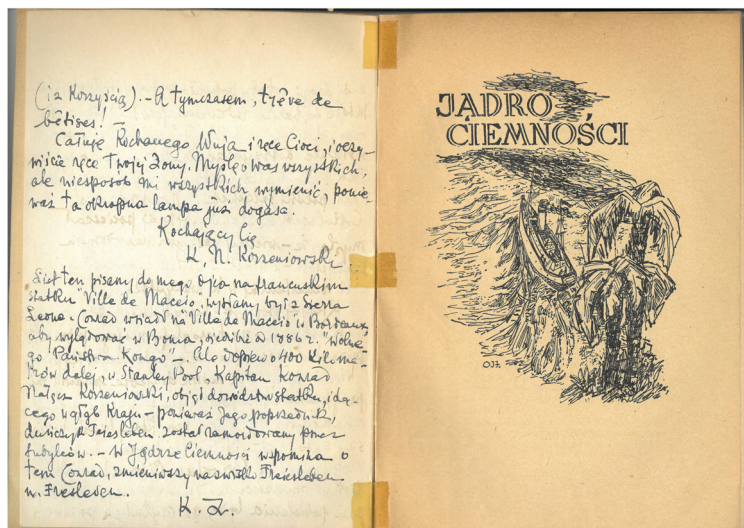 (i z Korzyścią). – A tymczasem, trêve de
bêtises!
Całuję Kochanego Wuja – i ręce Cioci, i oczy-
wiście ręce Twojej żony. Myślę o was wszystkich,
ale niesposób mi wszystkich wymienić, ponie-
waż ta okropna lampa już dogasa.
Kochający Cię
K. N. Korzeniowski.
List ten pisany do mego ojca na francuskim
statku "Ville de Maceio", wysłany był z Sierra
Leone. Conrad wsiadł na "Ville de Maceio" w Bordeaux,
aby wylądować w Boma, siedzibie w 1886 r. "Wolne-
go Państwa Kongo" –. Ale dopiero 400 kilome-
trów dalej, w Stanley Pool, Kapitan Konrad
Nałęcz Korzeniowski, objął dowództwo statku, idą-
cego w głąb Kraju – ponieważ Jego poprzednik,
duńczyk Freiesleben został zamordowany przez
tubylców. – W Jądrze Ciemności wspomina o
tem Conrad, zmieniwszy nazwisko Freiesleben
w. Fresleven.
K. Z.
JĄDRO
CIEMNOŚCI